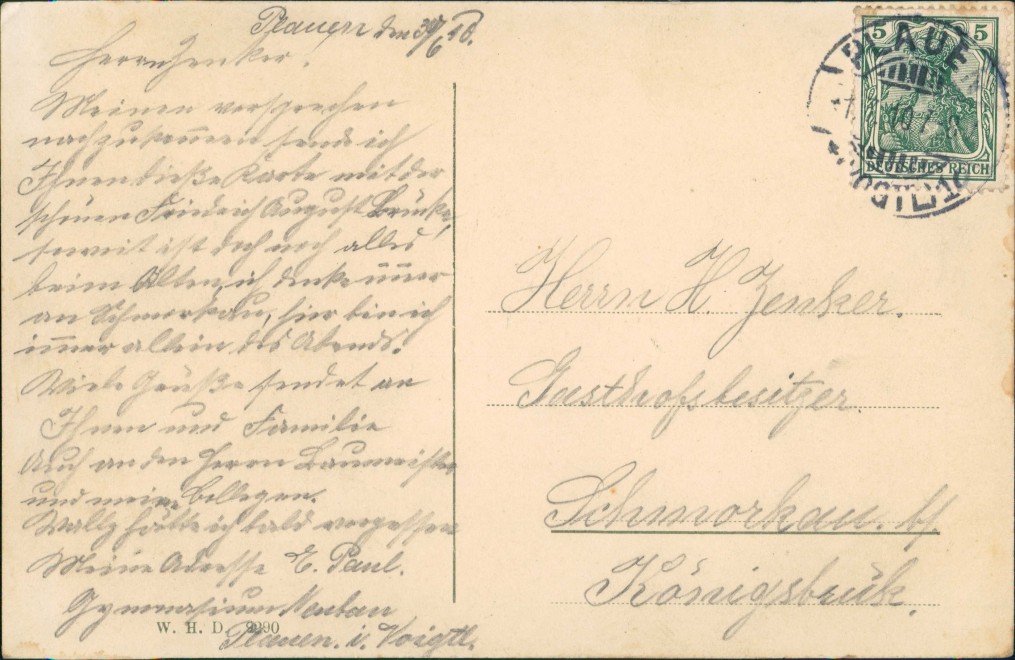 Plauen den 30/6 10.
Herrn Zenker.
Meinen versprechen
nachzukommen sende ich
Ihnen dieße Karte mit der
schönen Friedrich August Brücke,
soweit ist doch noch alles
beim Alten, ich denke immer
an Schmorkau, hier bin ich
immer allein des Abends.
Viele Grüße sendet an
Ihnen und Familie
Auch an den Herrn Baumeister
und meine Collegen.
hätte ich bald vergessen
Meine Adresse E. Paul.
Gymnasium Neubau
Plauen. i. Voigtl.
W. H. D. 9390
5 5
DEUTSCHES REICH
PLAUE
Herrn H. Zenker.
Gasthofsbesitzer.
Schmorkau. b/
Königsbrük.